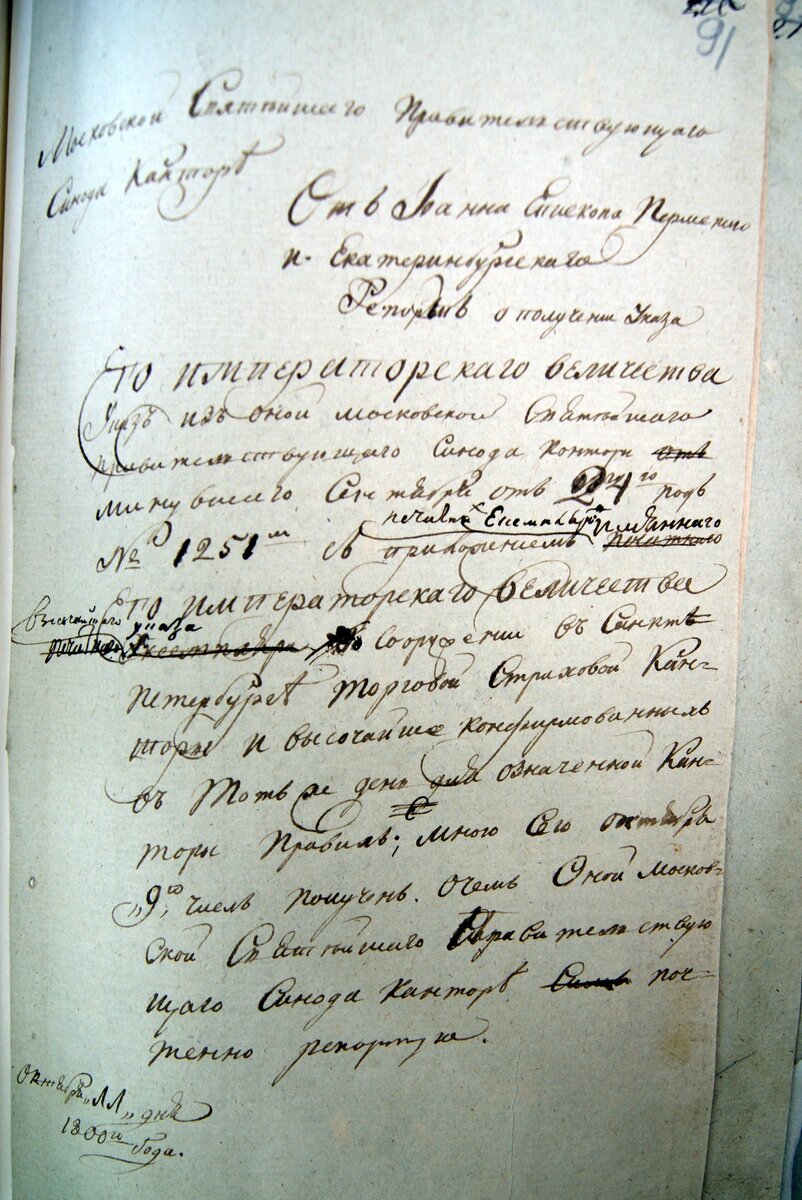 91
Московской Святѣйшего Правительствующаго
Синода Канторѣ
Отъ Іоанна Епископа Пермскаго
и Екатеринбургскаго
Репортъ о получении Указа
Его императорскаго величества
Указъ изъ оной московской Святѣйшаго
правительствующаго Синода канторы отъ
минувшего Сентября отъ 24го подъ
печатныхъ Екземпляровъ имяннаго
№ 1251м съ приложениемъ печатнаго
Его императорскаго величества
высочайшаго указа
печатнаго Екземпляра о сооружении въ Санктъ
Петербургѣ торговой Страховой Кан-
торы и высочайше конфирмованныхъ
въ Тотъ же день для означенной Кан-
торы Правилъ; мною Сего октября
„9го„ числъ полученъ. очемъ Оной москов-
ской Святѣйшаго Правительствую
щаго Синода канторѣ Симъ поч-
тенно репортую.
Октября „11„ дня
1800го
года.